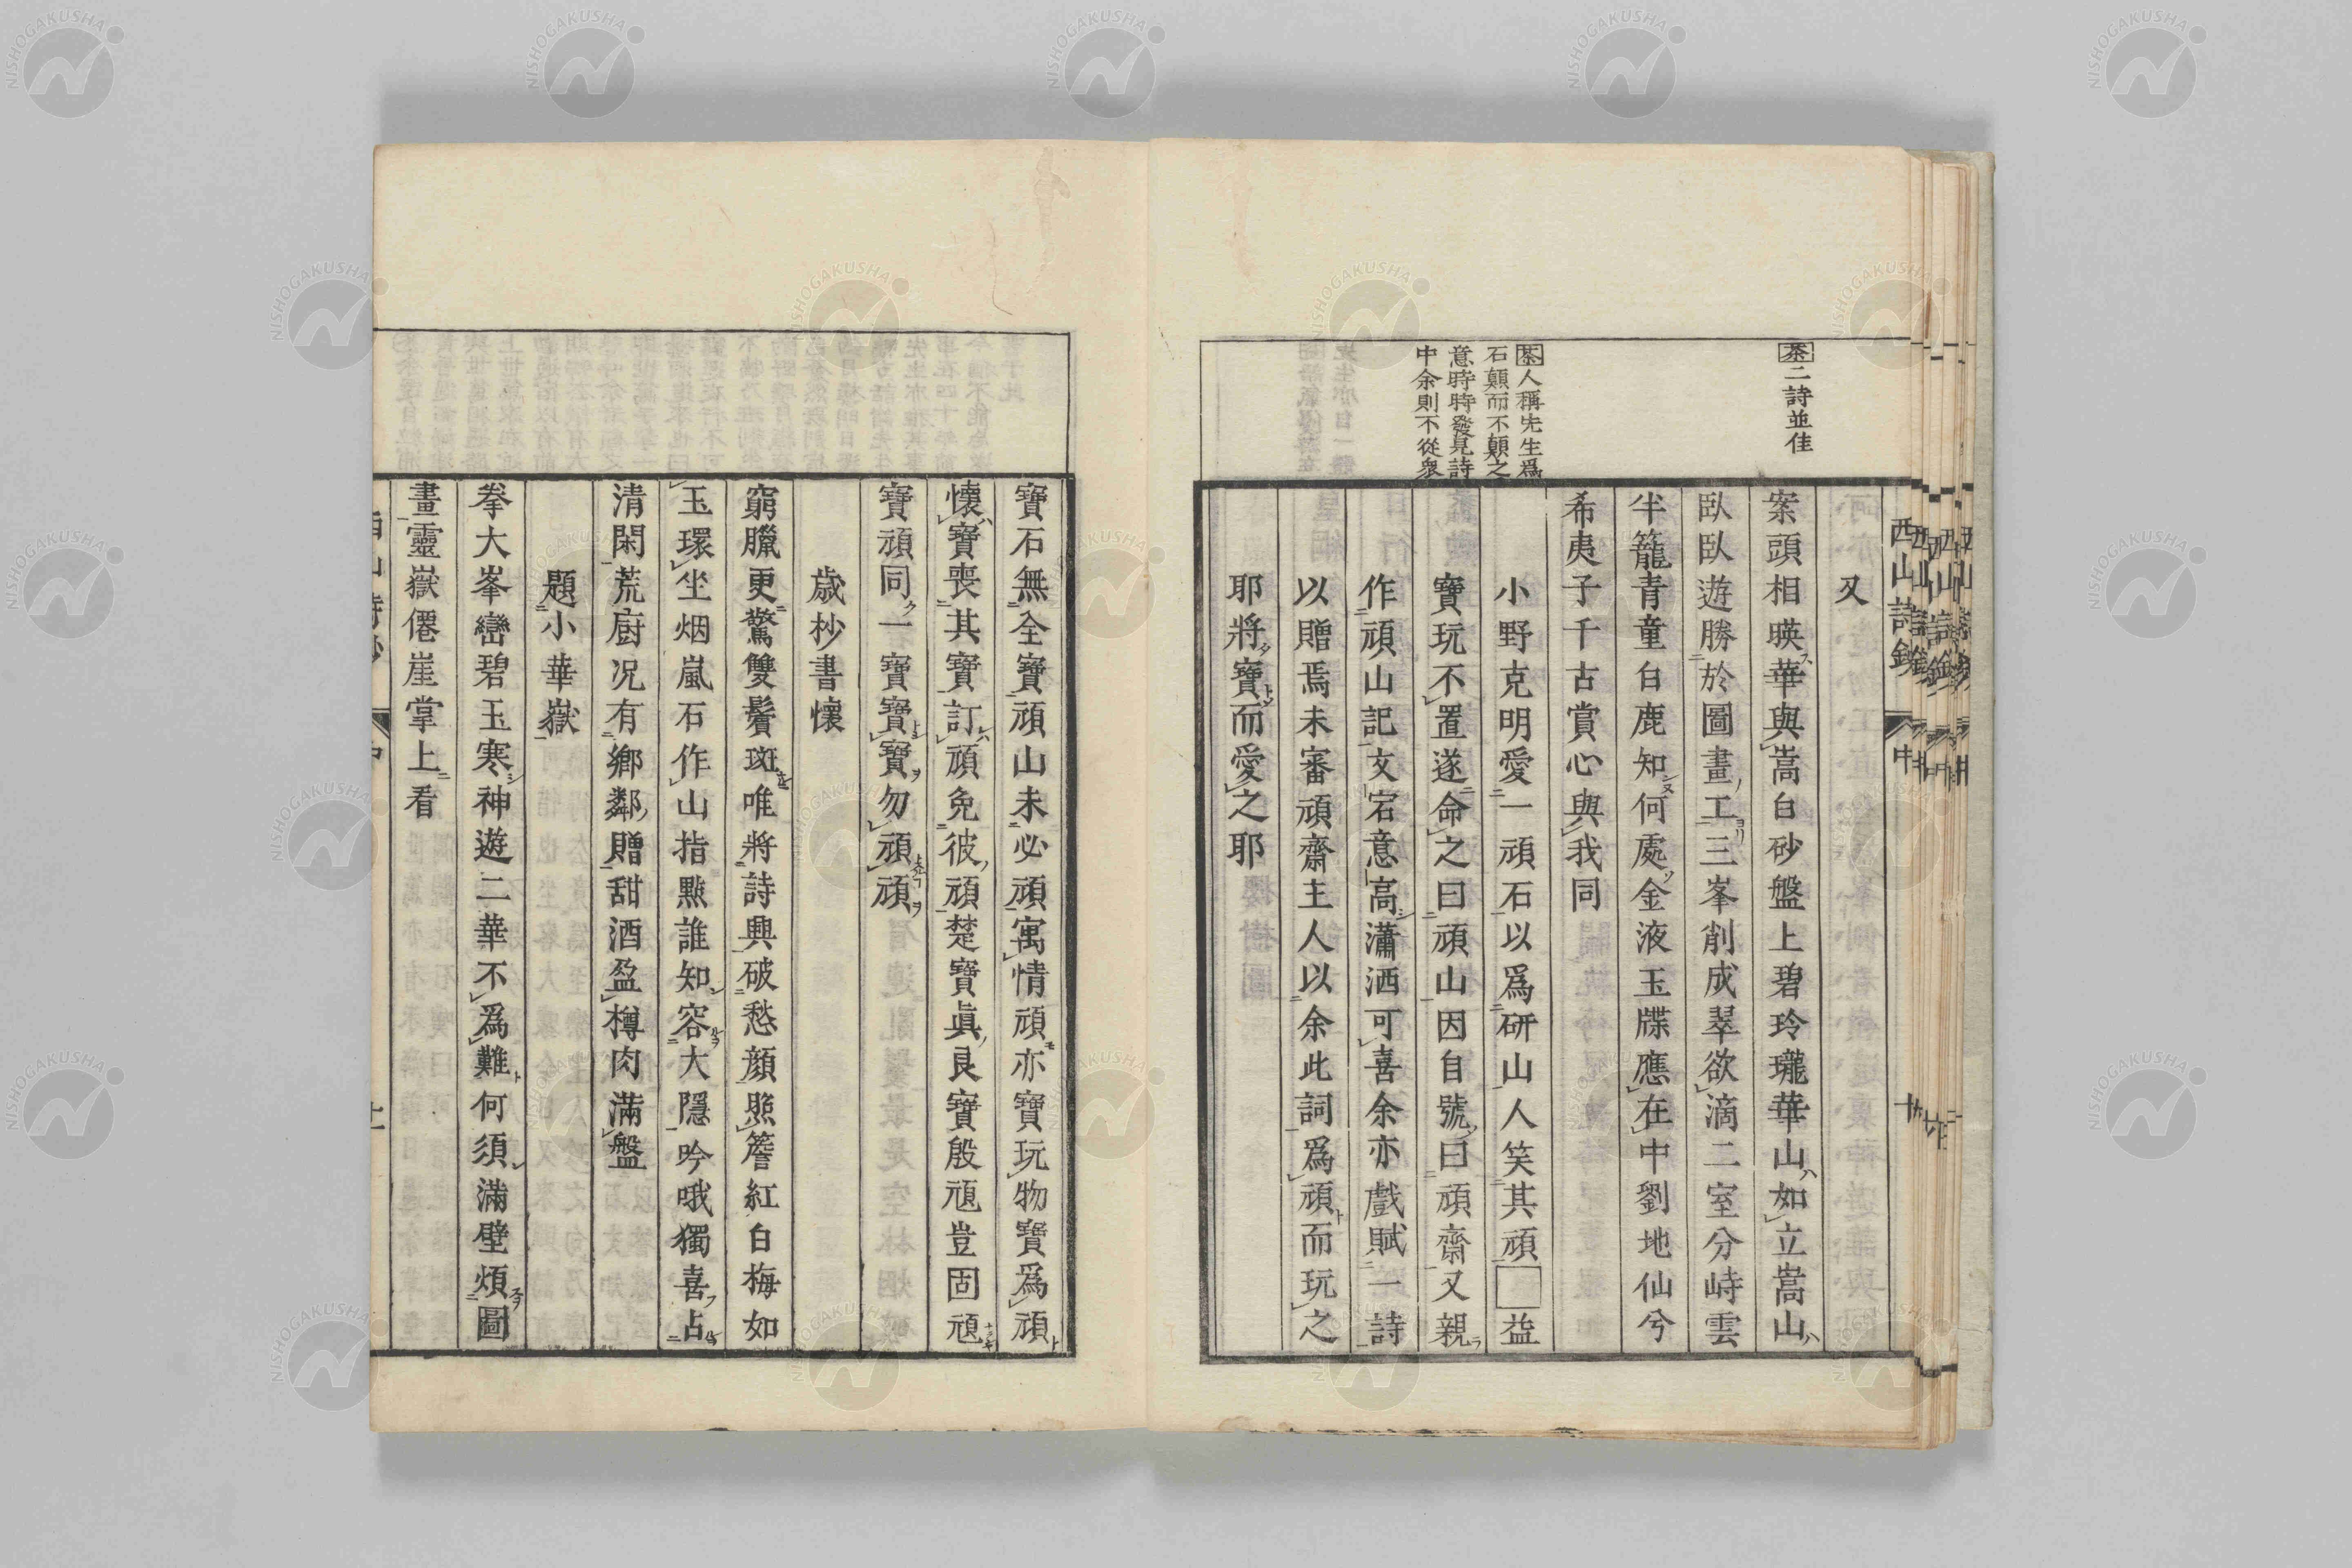 茶二詩並佳
茶人稱先生爲
石顛而不顛之
意時時發見詩
中余則不從衆
又
案頭相暎華與嵩白砂盤上碧玲瓏華山如立嵩山
臥臥遊勝於圖畫工三峯削成翠欲滴二室分峙雲
半籠青童白鹿知何處金液玉牒應在中劉地仙兮
希夷子千古賞心與我同
小野克明愛一頑石以爲研山人笑其頑□益
寶玩不置遂命之曰頑山因自號曰頑齋又親
作頑山記文宕意高瀟洒可喜余亦戲賦一詩
以贈焉未審頑齋主人以余此詞爲頑而玩之
耶將寶而愛之耶
寶石無全寶頑山未必頑寓情頑亦寶玩物寶爲頑
懷寶喪其寶訂頑免彼頑楚寶眞良寶殷頑豈固頑
寶頑同一寶寶寶勿頑頑
歳杪書懷
窮臘更驚雙鬢斑唯將詩興破愁顏照簷紅白梅如
玉環坐烟嵐石作山指點誰知容大隱吟哦獨喜占
清閑荒廚况有鄕鄰贈甜酒盈樽肉滿盤
題小華嶽
拳大峯巒碧玉寒神遊二華不爲難何須滿壁煩圖
畫靈嶽僊崖掌上看
西山詩鈔
中